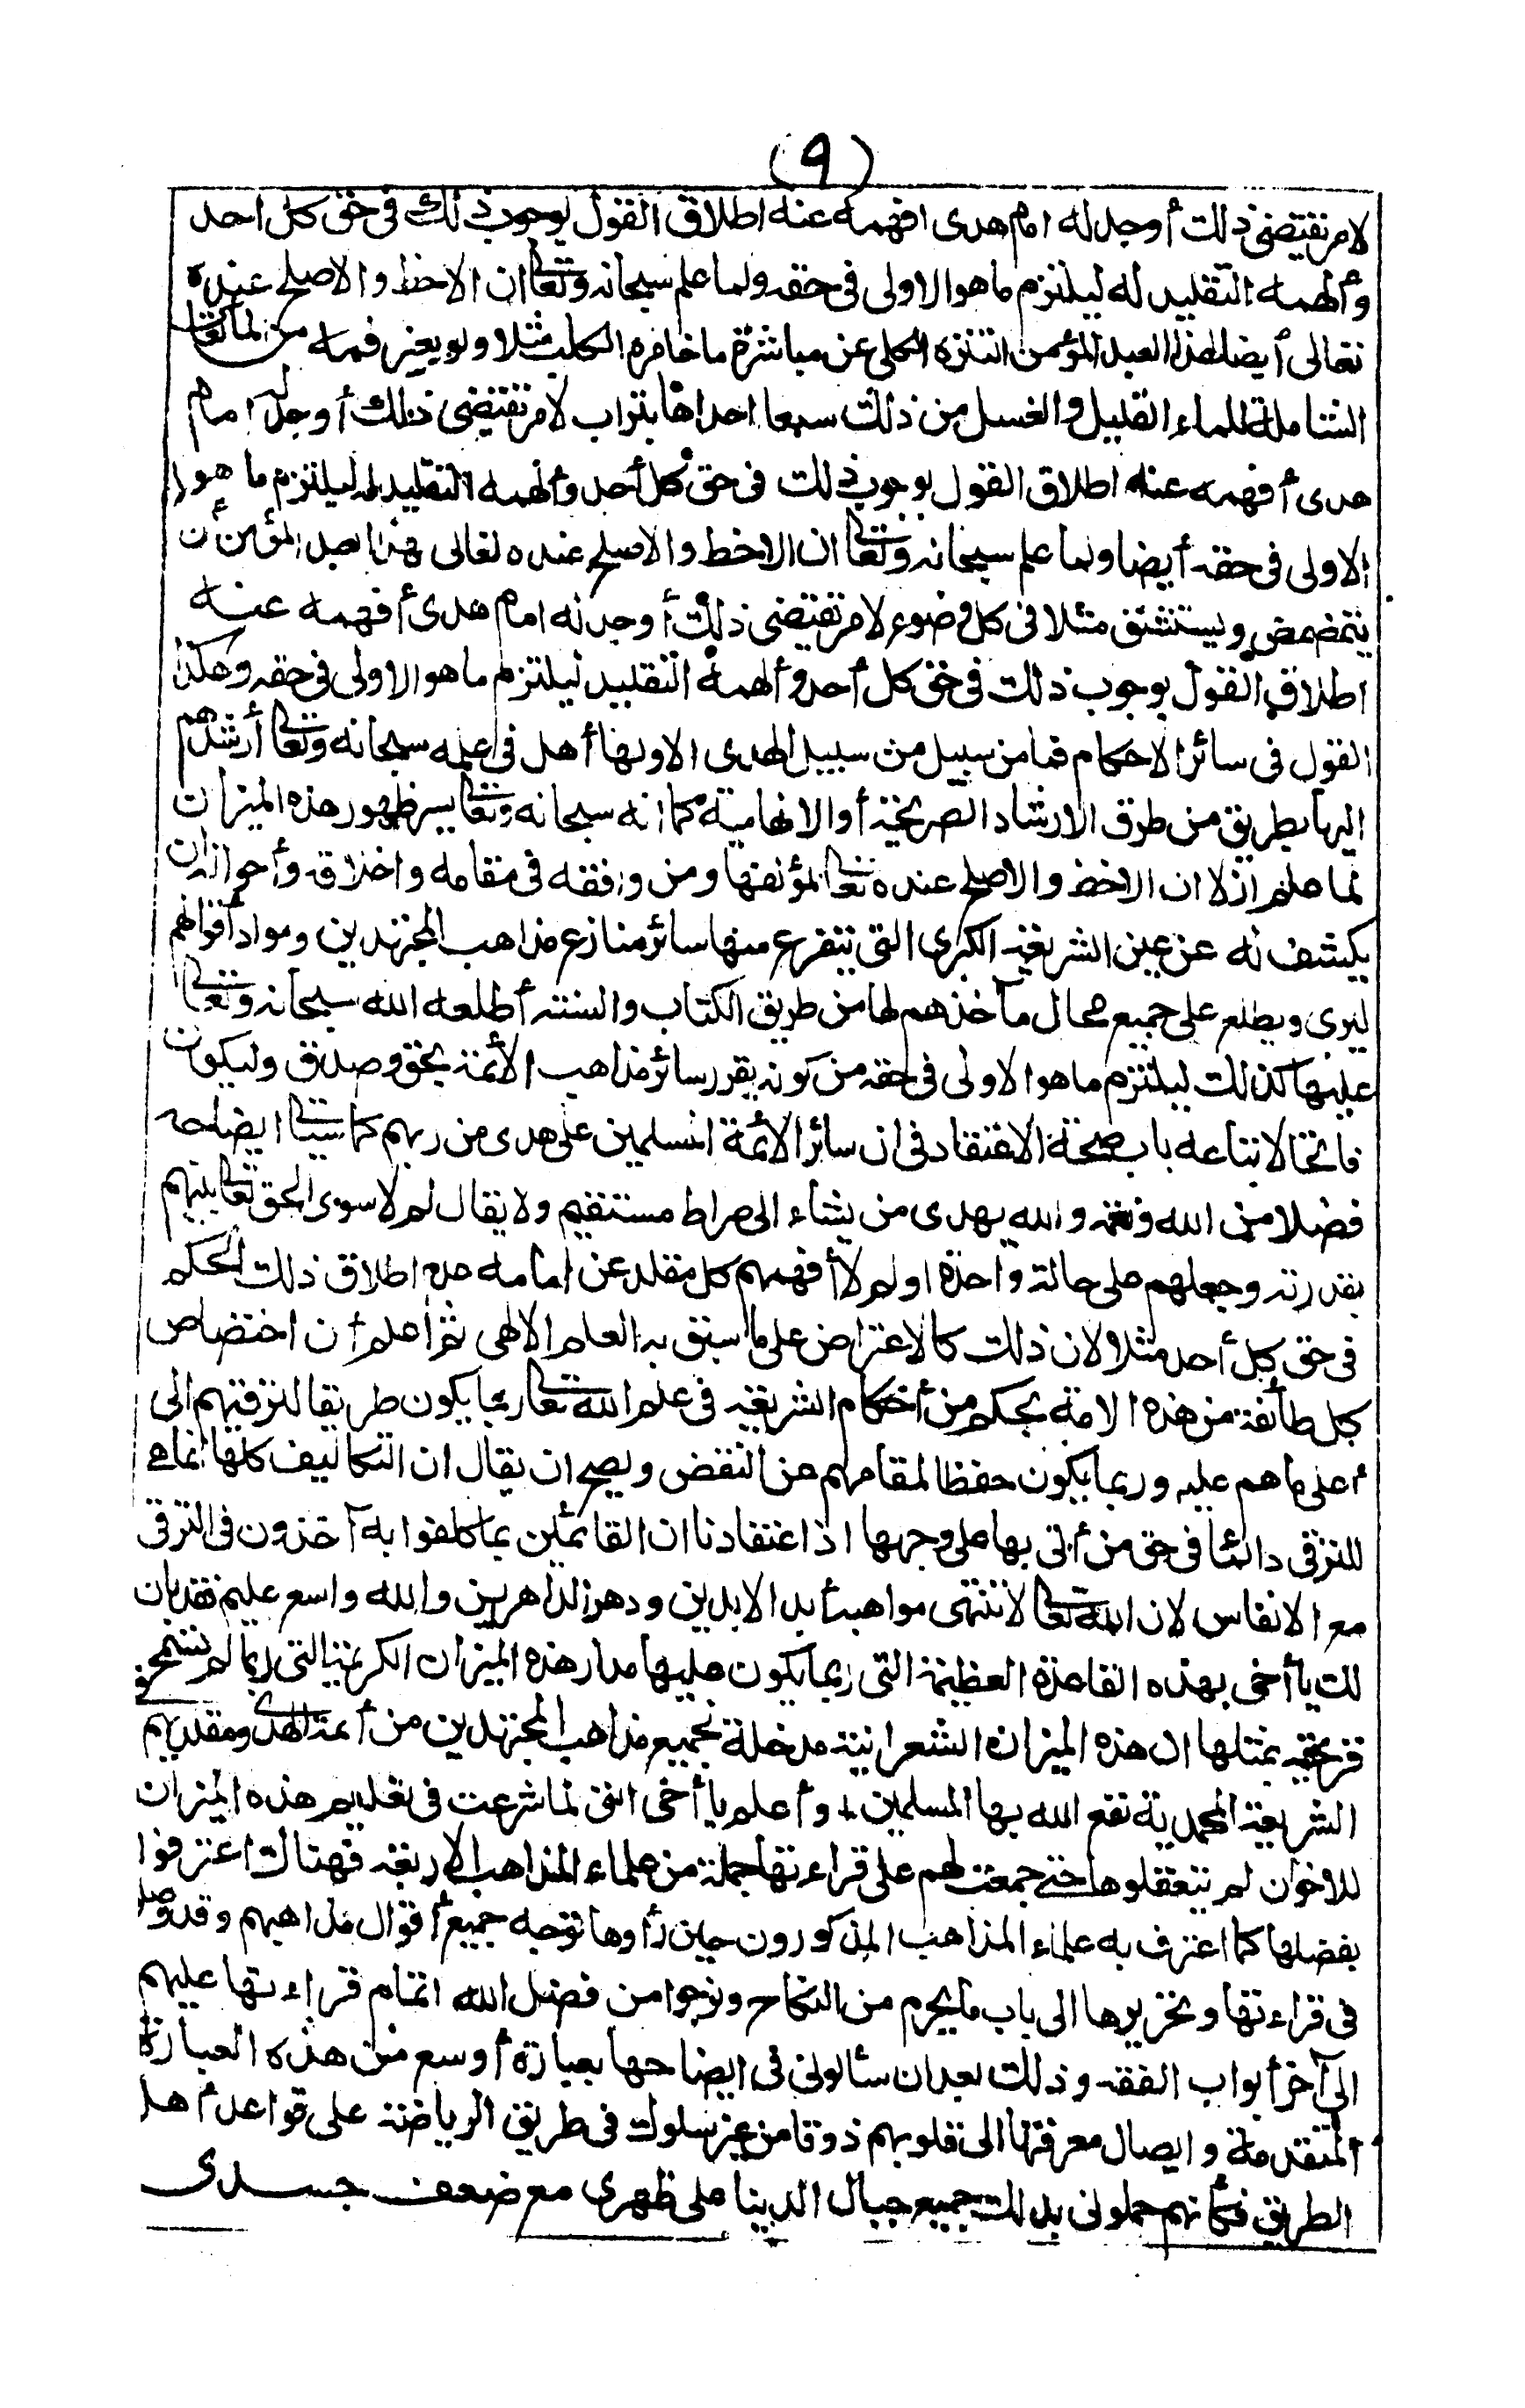 (٩)
لامر تقتضى ذلك أوجد له امام هدى افهمه عنه اطلاق القول بوجوب ذلك فى حق كل احد
وألهمه التقليد له ليلتزم ما هو الاولى فى حقه ولما علم سبحانه وتعالى ان الاحظ والاصلح عنده
تعالى أيضا لهذا العبد المؤمن التنزه الكلى عن مباشرة ما خامره الكلب مثلا ولو بغير فمه من المائعات
الشاملة للماء القليل والغسل من ذلك سبعا احداها بتراب لامر تقتضى ذلك أوجد له امام
هدى أفهمه عنه اطلاق القول بوجوب ذلك فى حق كل أحد وألهمه التقليد له ليلتزم ما هو ا
الاولى فى حقه أيضا ولما علم سبحانه وتعالى ان الاحظ والاصلح عنده تعالى لهذا لعبد المؤمن أن
يتمضمض ويستنشق مثلا فى كل وضوء لامر تقتضى ذلك أوجد له امام هدى أفهمه عنه
اطلاق القول بوجوب ذلك فى حق كل أحد وألهمه التقليد ليلتزم ما هو الاولى فى حقه وهكذا
القول فى سائر الاحكام فما من سبيل من سبيل الهدى الا ولها أهل فى علمه سبحانه وتعالى أرشدهم
اليها بطريق من طرق الارشاد الصريحة أو الالهامية كما انه سبحانه وتعالى يسر ظهور هذه الميزان
لما علم ازلا ان الاحظ والاصلح عنده تعالى لمؤلفها ومن وافقه فى مقامه واخلاقه وأحواله ان
يكشف له عن عين الشريعة الكبرى التى يتفرع منها سائر منازع مذاهب المجتهدين ومواد أقوالهم
ليرى ويطلع على جميع محال مآخذهم لها من طريق الكتاب والسنة أطلعه الله سبحانه وتعالى
عليها كذلك ليلتزم ما هو الاولى فى حقه من كونه يقرر سائر مذاهب الأئمة بحق وصدق وليكون
فاتحا لاتباعه باب صحة الاعتقاد فى ان سائر الأئمة المسلمين على هدى من ربهم كما سيأتى ايضاحه
فضلا من الله ونعمة والله يهدى من يشاء الى صراط مستقيم ولا يقال لم لا سوى الحق تعالى بينهم
بقدرته وجعلهم على حالة واحدة او لم لا أفهمهم كل مقلد عن امامه عدم اطلاق ذلك الحكم
فى حق كل أحد مثلا لان ذلك كالاعتراض على ما سبق به العلم الالهى ثم أعلم أن اختصاص
كل طائفة من هذه الامة بحكم من أحكام الشريعة فى علم الله تعالى ربما يكون طريقا لترقيتهم الى
أعلى ما هم عليه وربما يكون حفظا لمقامهم عن النقض ويصح ان يقال ان التكاليف كلها انما هى
للترقى دائما فى حق من أتى بها على وجهها اذ اعتقادنا ان القائمين بما كلفوا به آخذون فى الترقى
مع الانفاس لان الله تعالى لا تنتهى مواهبه أبد الابدين ودهر الداهرين والله واسع عليم فقد بان
لك يا أخى بهذه القاعدة العظيمة التى ربما يكون عليها مدار هذه الميزان الكريمة التى ربما لم تسمح
قريحة بمثلها ان هذه الميزان الشعرانية مدخلة لجميع مذاهب المجتهدين من أئمة الهدى ومقلديهم
الشريعة المحمدية نفع الله بها المسلمين وأعلم يا أخى اننى لما شرعت فى تعليم هذه الميزان
للاخوان لم يتعقلوها حتى جمعت لهم على قراءتها جملة من علماء المذاهب الاربعة فهناك اعترفوا
بفضلها كما اعترف به علماء المذاهب المذكورون حين رأوها توجه جميع أقوال مذاهبهم وقد وصلوا
فى قراءتها وتحريرها الى باب ما يحرم من النكاح ونرجوا من فضل الله اتمام قراءتها عليهم
الى آخر أبواب الفقه وذلك بعد ان سألونى فى ايضاحها بعبارة أوسع من هذه العبارة
المتقدمة وايصال معرفتها الى قلوبهم ذوقا من غير سلوك فى طريق الرياضة على قواعد أهل
الطريق فكأنهم حملونى بذلك جميع جبال الدينا على ظهرى مع ضعف جسدى